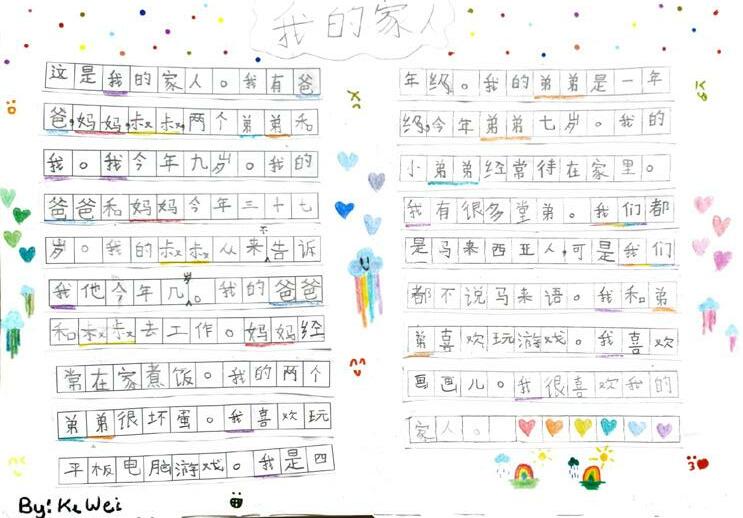 我的家人
这是我的家人。我有爸
爸,妈妈,叔叔,两个弟弟和
我。我今年九岁。我的
爸爸和妈妈今年三十七
岁。我的叔叔从来不告诉
我他今年几岁。我的爸爸
和叔叔去工作。妈妈经
常在家煮饭。我的两个
弟弟很坏蛋。我喜欢玩
平板电脑游戏。我是四
By: Ke Wei
年级。我的弟弟是一年
级,今年弟弟七岁。我的
小弟弟经常待在家里。
我有很多堂弟。我们都
是马来西亚人,可是我们
都不说马来语。我和弟
弟喜欢玩游戏。我喜欢
画画儿。我很喜欢我的
家人。